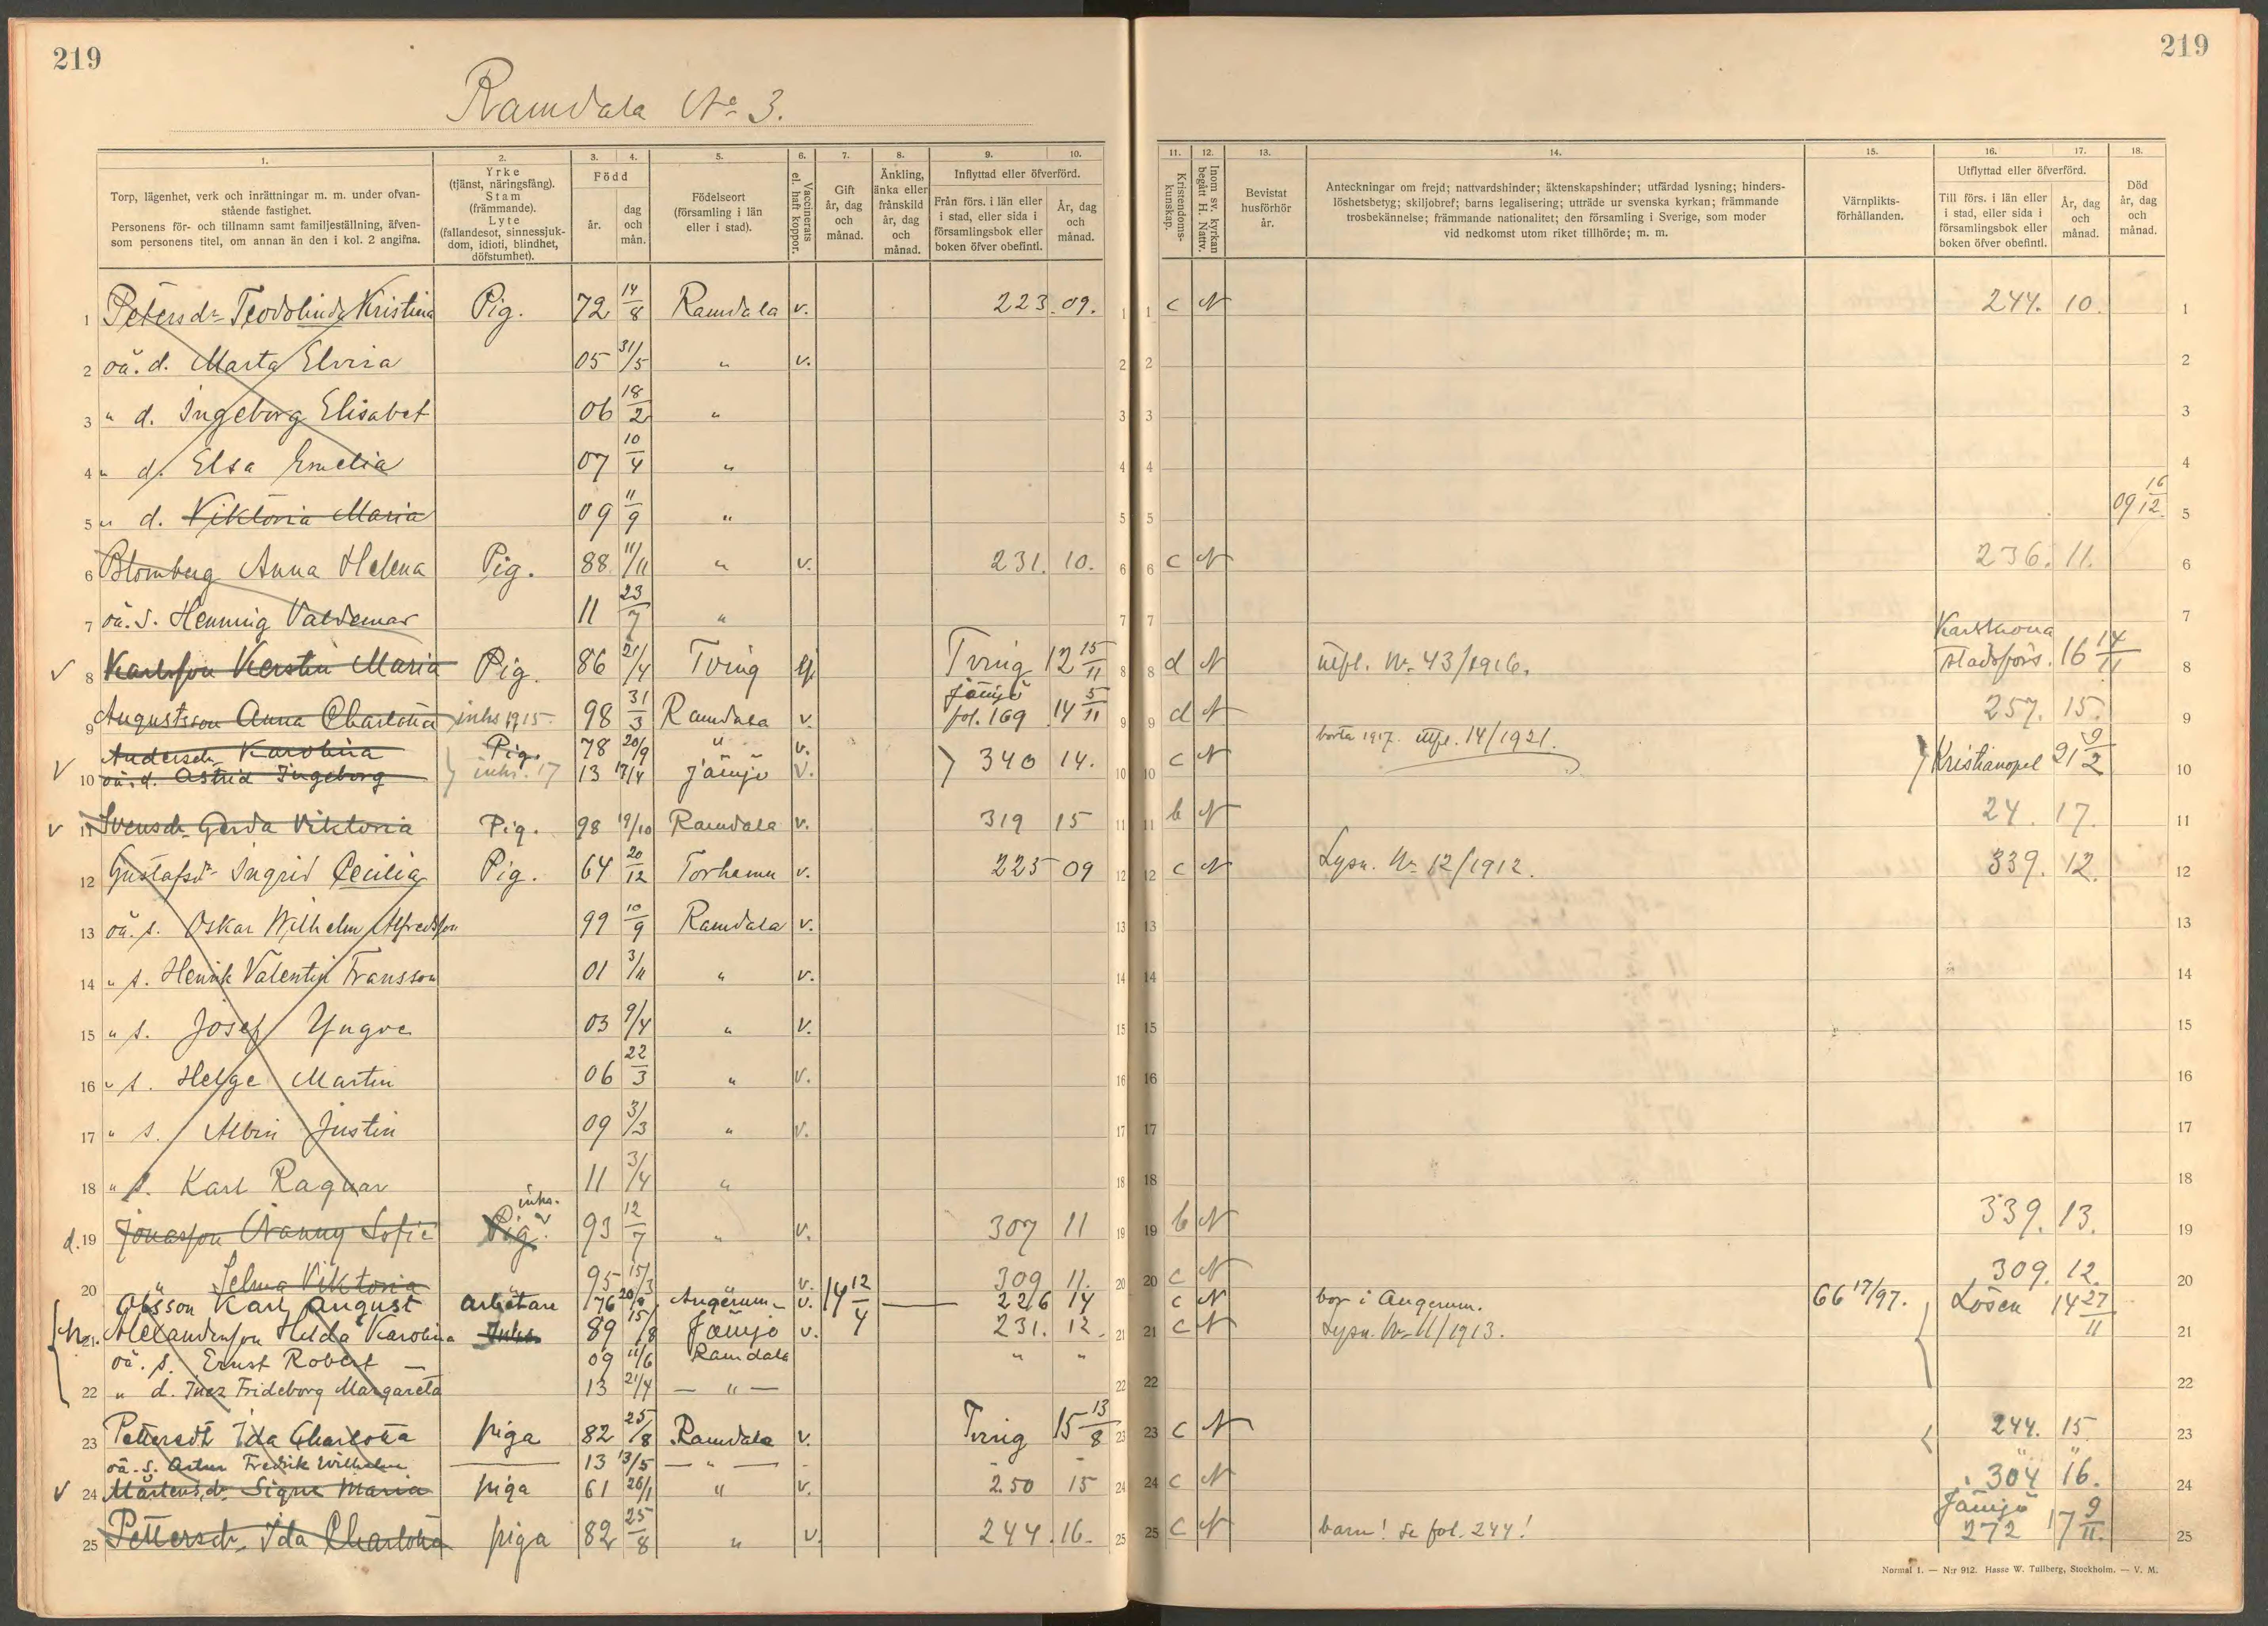 219
219
Ramdala No 3.
1. 2. 3. 4. 5. 6. 7. 8. 9. 10.
Torp, lägenhet, verk och inrättningar m. m. under ofvan-
stående fastighet.
Personens för- och tillnamn samt familjeställning, äfven-
som personens titel, om annan än den i kol. 2 angifna.
Yrke
(tjänst, näringsfång).
Stam
(främmande).
Lyte
(fallandesot, sinnessjuk-
dom, idioti, blindhet,
döfstumhet).
Född
år.
dag
och
mån.
Födelseort
(församling i län
eller i stad).
Vaccinerats
el. haft koppor.
Gift
år, dag
och
månad.
Änkling,
änka eller
frånskild
år, dag
och
månad.
Inflyttad eller öfverförd.
Från förs. i län eller
i stad, eller sida i
församlingsbok eller
boken öfver obefintl.
År, dag
och
månad.
11. 12. 13. 14. 15. 16. 17. 18.
Kristendoms-
kunskap.
Inom sv. kyrkan
begått H. Nattv.
Bevistat
husförhör
år.
Anteckningar om frejd; nattvardshinder; äktenskapshinder; utfärdad lysning; hinders-
löshetsbetyg; skiljobref; barns legalisering; utträde ur svenska kyrkan; främmande
trosbekännelse; främmande nationalitet; den församling i Sverige, som moder
vid nedkomst utom riket tillhörde; m. m.
Värnplikts-
förhållanden.
Utflyttad eller öfverförd.
Till förs. i län eller
i stad, eller sida i
församlingsbok eller
boken öfver obefintl.
År, dag
och
månad.
Död
år, dag
och
månad.
1 Petersdr Teodolinda Kristina Pig. 72 14/8 Ramdala v. 223. 09. 1 1 c N 244. 10. 1
2 oä. d. Marta Elvira 05 31/5 " v. 2 2 2
3 " d. Ingeborg Elisabet 06 18/2 " 3 3 3
4 " d. Elsa Emelia 07 10/4 " 4 4 4
5 " d. Viktoria Maria 09 11/9 " 5 5 09 16/12 5
6 Blomberg Anna Helena Pig. 88 11/11 " v. 231. 10. 6 6 c N 236. 11. 6
7 oä. s. Henning Valdemar 11 23/7 " 7 7 7
v 8 Karlsson Kerstin Maria Pig. 86 21/4 Tving Tving 12 15/11 8 8 d N utfl. No 43/1916. Karlskrona stadsförs. 16 14/11 8
9 Augustsson Anna Charlotta inhs 1915. 98 31/3 Ramdala v. Jämjö fol. 169 14 5/11 9 9 d N 257. 15. 9
Andersdr Karolina Pig. 78 20/9 " v. borta 1917. utfl. 14/1921.
v 10 oä. d. Astrid Ingeborg inhs. 17 13 17/4 Jämjö v. 340 14. 10 10 c N Kristianopel 21 9/2 10
v 11 Svensdr Gerda Viktoria Pig. 98 19/10 Ramdala v. 319 15 11 11 b N 24. 17. 11
12 Gustafsdr Ingrid Cecilia Pig. 64 20/12 Torhamn v. 225 09 12 12 c N Lysn. No 12/1912. 339. 12. 12
13 oä. s. Oskar Wilhelm Alfredsson 99 10/9 Ramdala v. 13 13 13
14 " s. Henrik Valentin Fransson 01 3/11 " v. 14 14 14
15 " s. Josef Yngve 03 9/4 " v. 15 15 15
16 " s. Helge Martin 06 22/3 " v. 16 16 16
17 " s. Albin Justin 09 3/3 " v. 17 17 17
18 " s. Karl Ragnar 11 3/4 " 18 18 18
d. 19 Jonasson Nanny Sofie Pig. inhs. 93 12/7 " v. 307 11 19 19 b N 339. 13. 19
20 " Selma Viktoria 95 15/3 v. 309 11. 20 20 c N 309. 12. 20
Olsson Karl August arbetare 76 Augerum v. 14 12/4 226 14 c N bor i Augerum. 66 17/97. Lösen 14 27/11
h. 21 Alexandersson Hilda Karolina Inhs 89 15/8 Jämjö v. 231. 12. 21 21 c N Lysn. No 11/1913. 21
oä. s. Ernst Robert 09 11/6 Ramdala " "
22 " d. Inez Frideborg Margareta 13 21/4 — " — 22 22 22
23 Pettersdt Ida Charlotta piga 82 25/8 Ramdala v. Tving 15 13/8 23 23 c N 244. 15. 23
oä. s. Artur Fredrik Wilhelm 13 13/5 — " — " "
v 24 Mårtensdr Signe Maria piga 61 26/1 " v. 250 15 24 24 c N 304 16. 24
25 Pettersdr Ida Charlotta piga 82 25/8 " v. 244. 16. 25 25 c N barn! se fol. 244! Jämjö 272 17 9/11. 25
Normal 1. — N:r 912. Hasse W. Tullberg, Stockholm. — V. M.